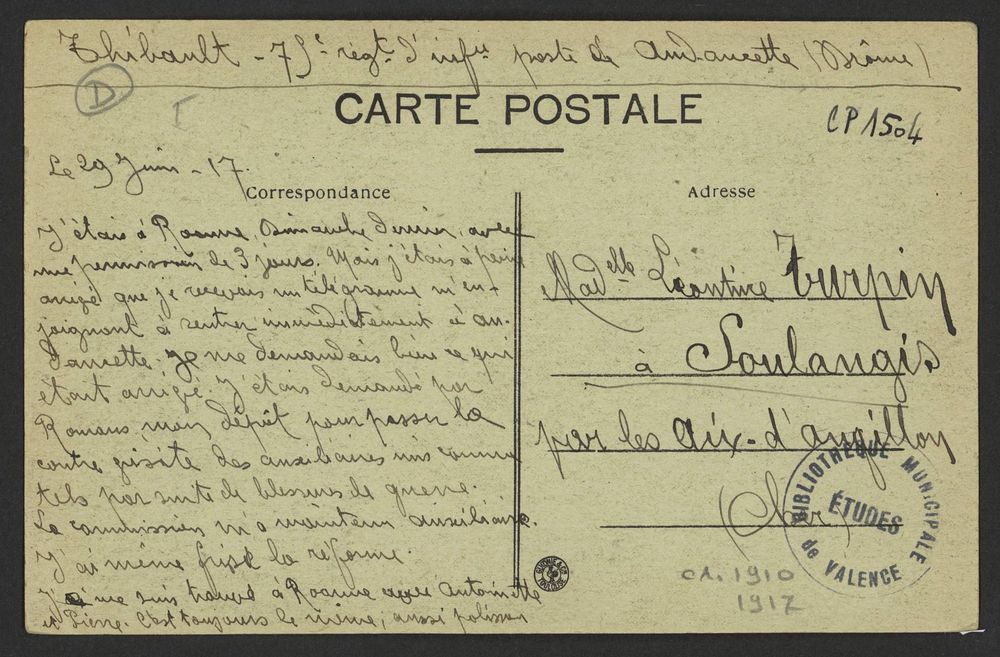 Thibault - 75e régt d'infie poste de Andancette (Drôme)
D
I
CARTE POSTALE
CP 1504
Le 29 Juin - 17.
Correspondance
J'étais à Roanne, Dimanche dernier, avec
une permission de 3 jours. Mais j'étais à peine
arrivé que je recevais un télégramme m'en-
joignant à rentrer immédiatement à An-
dancette. Je me demandais bien ce qui
était arrivé. J'étais demandé par
Romans, mon dépôt pour passer la
contre visite des auxiliaires mis comme
tels par suite de blessures de guerre.
La commission m'a maintenu auxiliaire.
J'ai même frisé la réforme.
Je me suis trouvé à Roanne avec Antoinette
et Pierre. C'est toujours le même, aussi polisson
Adresse
Madelle Léontine Turpin
à Soulangis
par les Aix-d'angillon
(Cher)
BIBLIOTHEQUE MUNICIPALE
ÉTUDES
de VALENCE
1910
1917